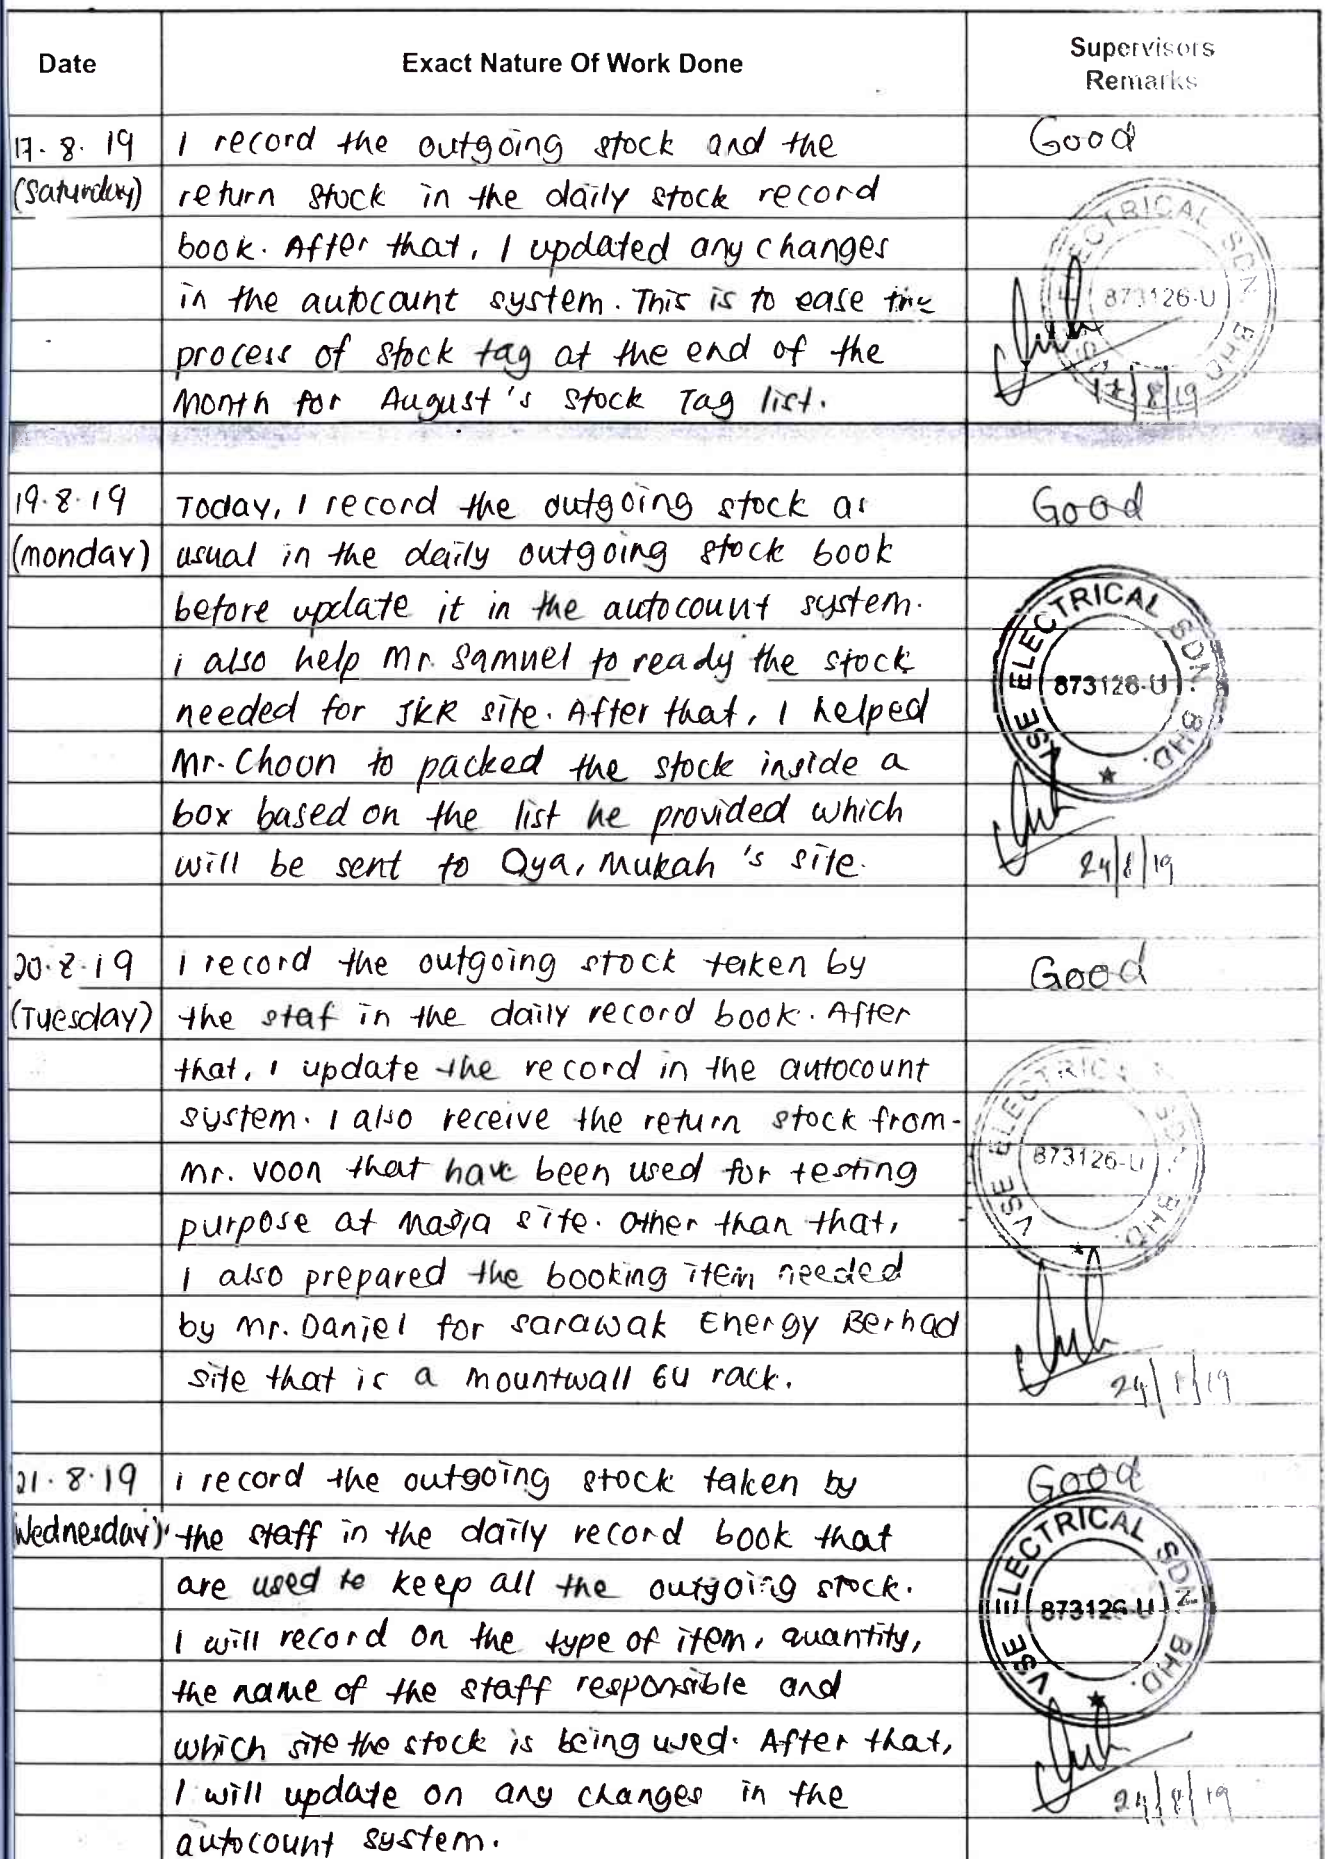 Date
Exact Nature Of Work Done
Supervisors
Remarks
17.8.19
(Saturday)
I record the outgoing stock and the
return stock in the daily stock record
book. After that, I updated any changes
in the autocount system. This is to ease the
process of stock tag at the end of the
Month for August's stock Tag list.
Good
ELECTRICAL SDN. BHD.
873126-U
17/8/19
19.8.19
(monday)
Today, I record the outgoing stock as
usual in the daily outgoing stock book
before update it in the autocount system.
i also help Mr. Samuel to ready the stock
needed for JKR site. After that, I helped
Mr. Choon to packed the stock inside a
box based on the list he provided which
will be sent to Oya, Mukah 's site.
Good
VSE ELECTRICAL SDN. BHD.
873126-U
24/8/19
20.8.19
(Tuesday)
I record the outgoing stock taken by
the staf in the daily record book. After
that, I update the record in the autocount
system. I also receive the return stock from
mr. voon that have been used for testing
purpose at Masja site. Other than that,
I also prepared the booking item needed
by mr. Daniel for sarawak Energy Berhad
site that is a mountwall 6U rack.
Good
VSE ELECTRICAL SDN. BHD.
873126-U
24/8/19
21.8.19
(Wednesday)
i record the outgoing stock taken by
the staff in the daily record book that
are used to keep all the outgoing stock.
I will record on the type of item, quantity,
the name of the staff responsible and
which site the stock is being used. After that,
I will update on any changes in the
autocount system.
Good
VSE ELECTRICAL SDN. BHD.
873126-U
24/8/19